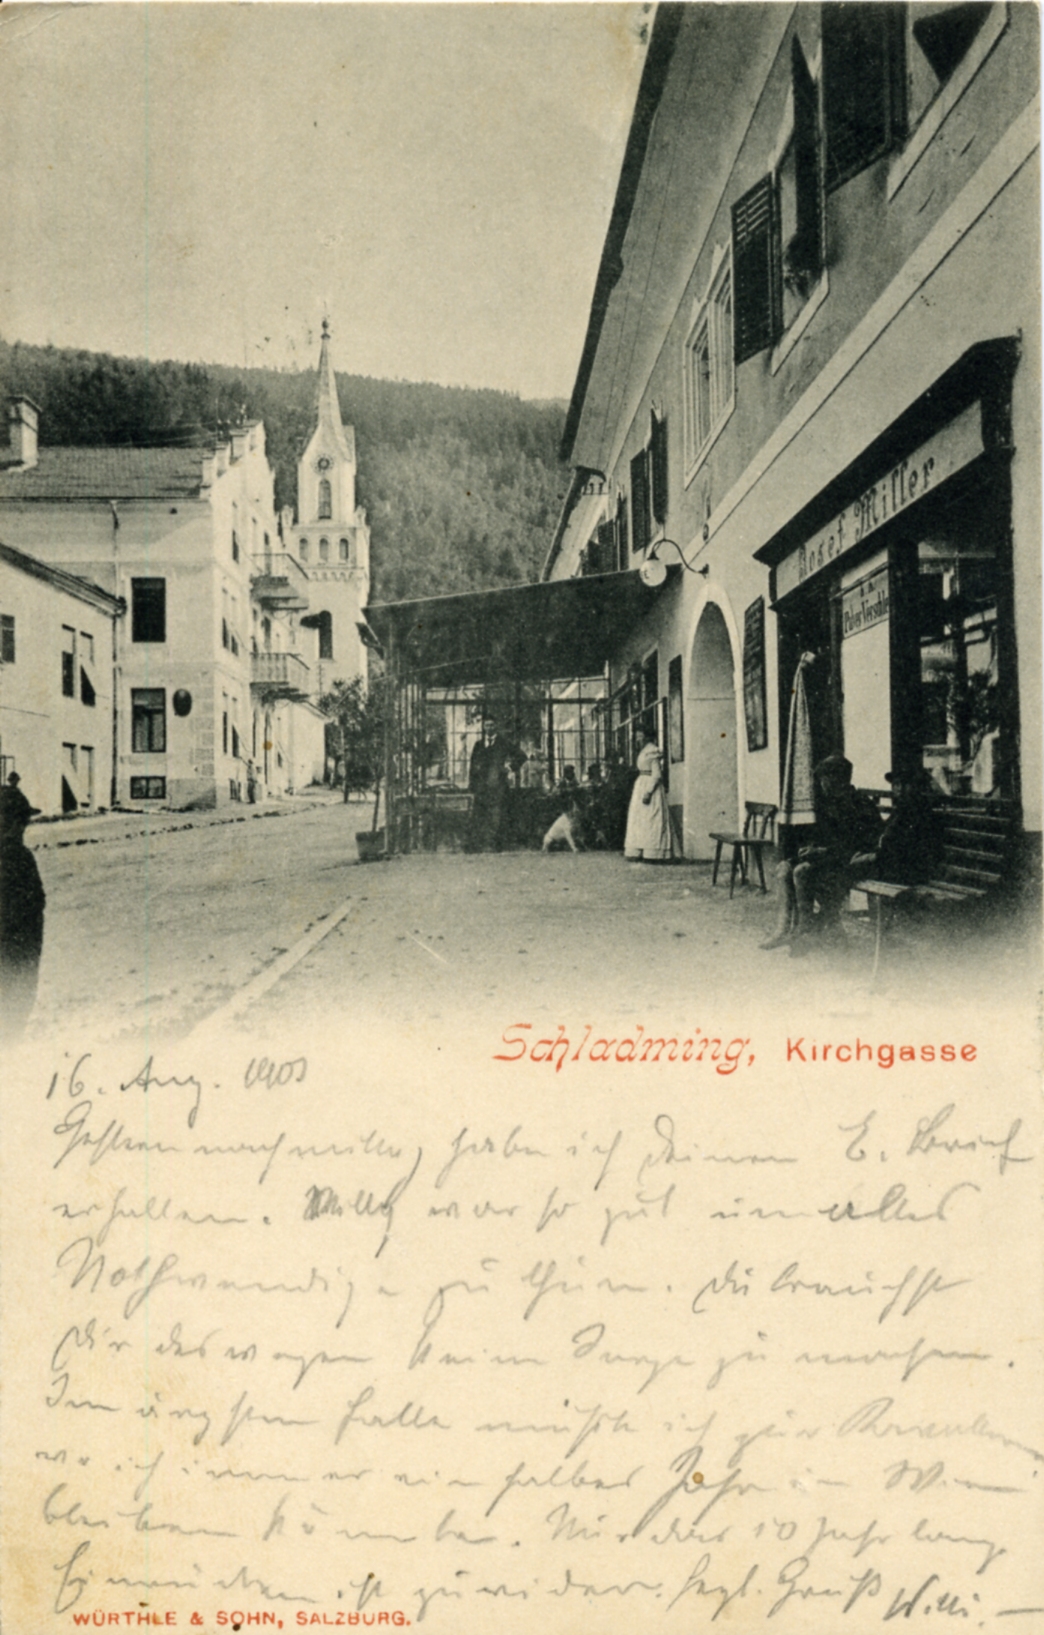 Josef Miller
k. k.
Pulver Verschle
Schladming, Kirchgasse
16. Aug. 1901
Gestern nachmittag habe ich Deinen E. Brief
erhalten. Milly war so gut um alles
Nothwendige zu thun. Du brauchst
Dir deswegen keine Sorge zu machen.
Im ärgsten Falle müßte ich zur
wo ich immer ein halbes Jahr in Wien
bleiben könnte. Nur das 10 Jahr lange
Einrücken ist zuwider. herzl. Gruß Willi.
WÜRTHLE & SOHN, SALZBURG.